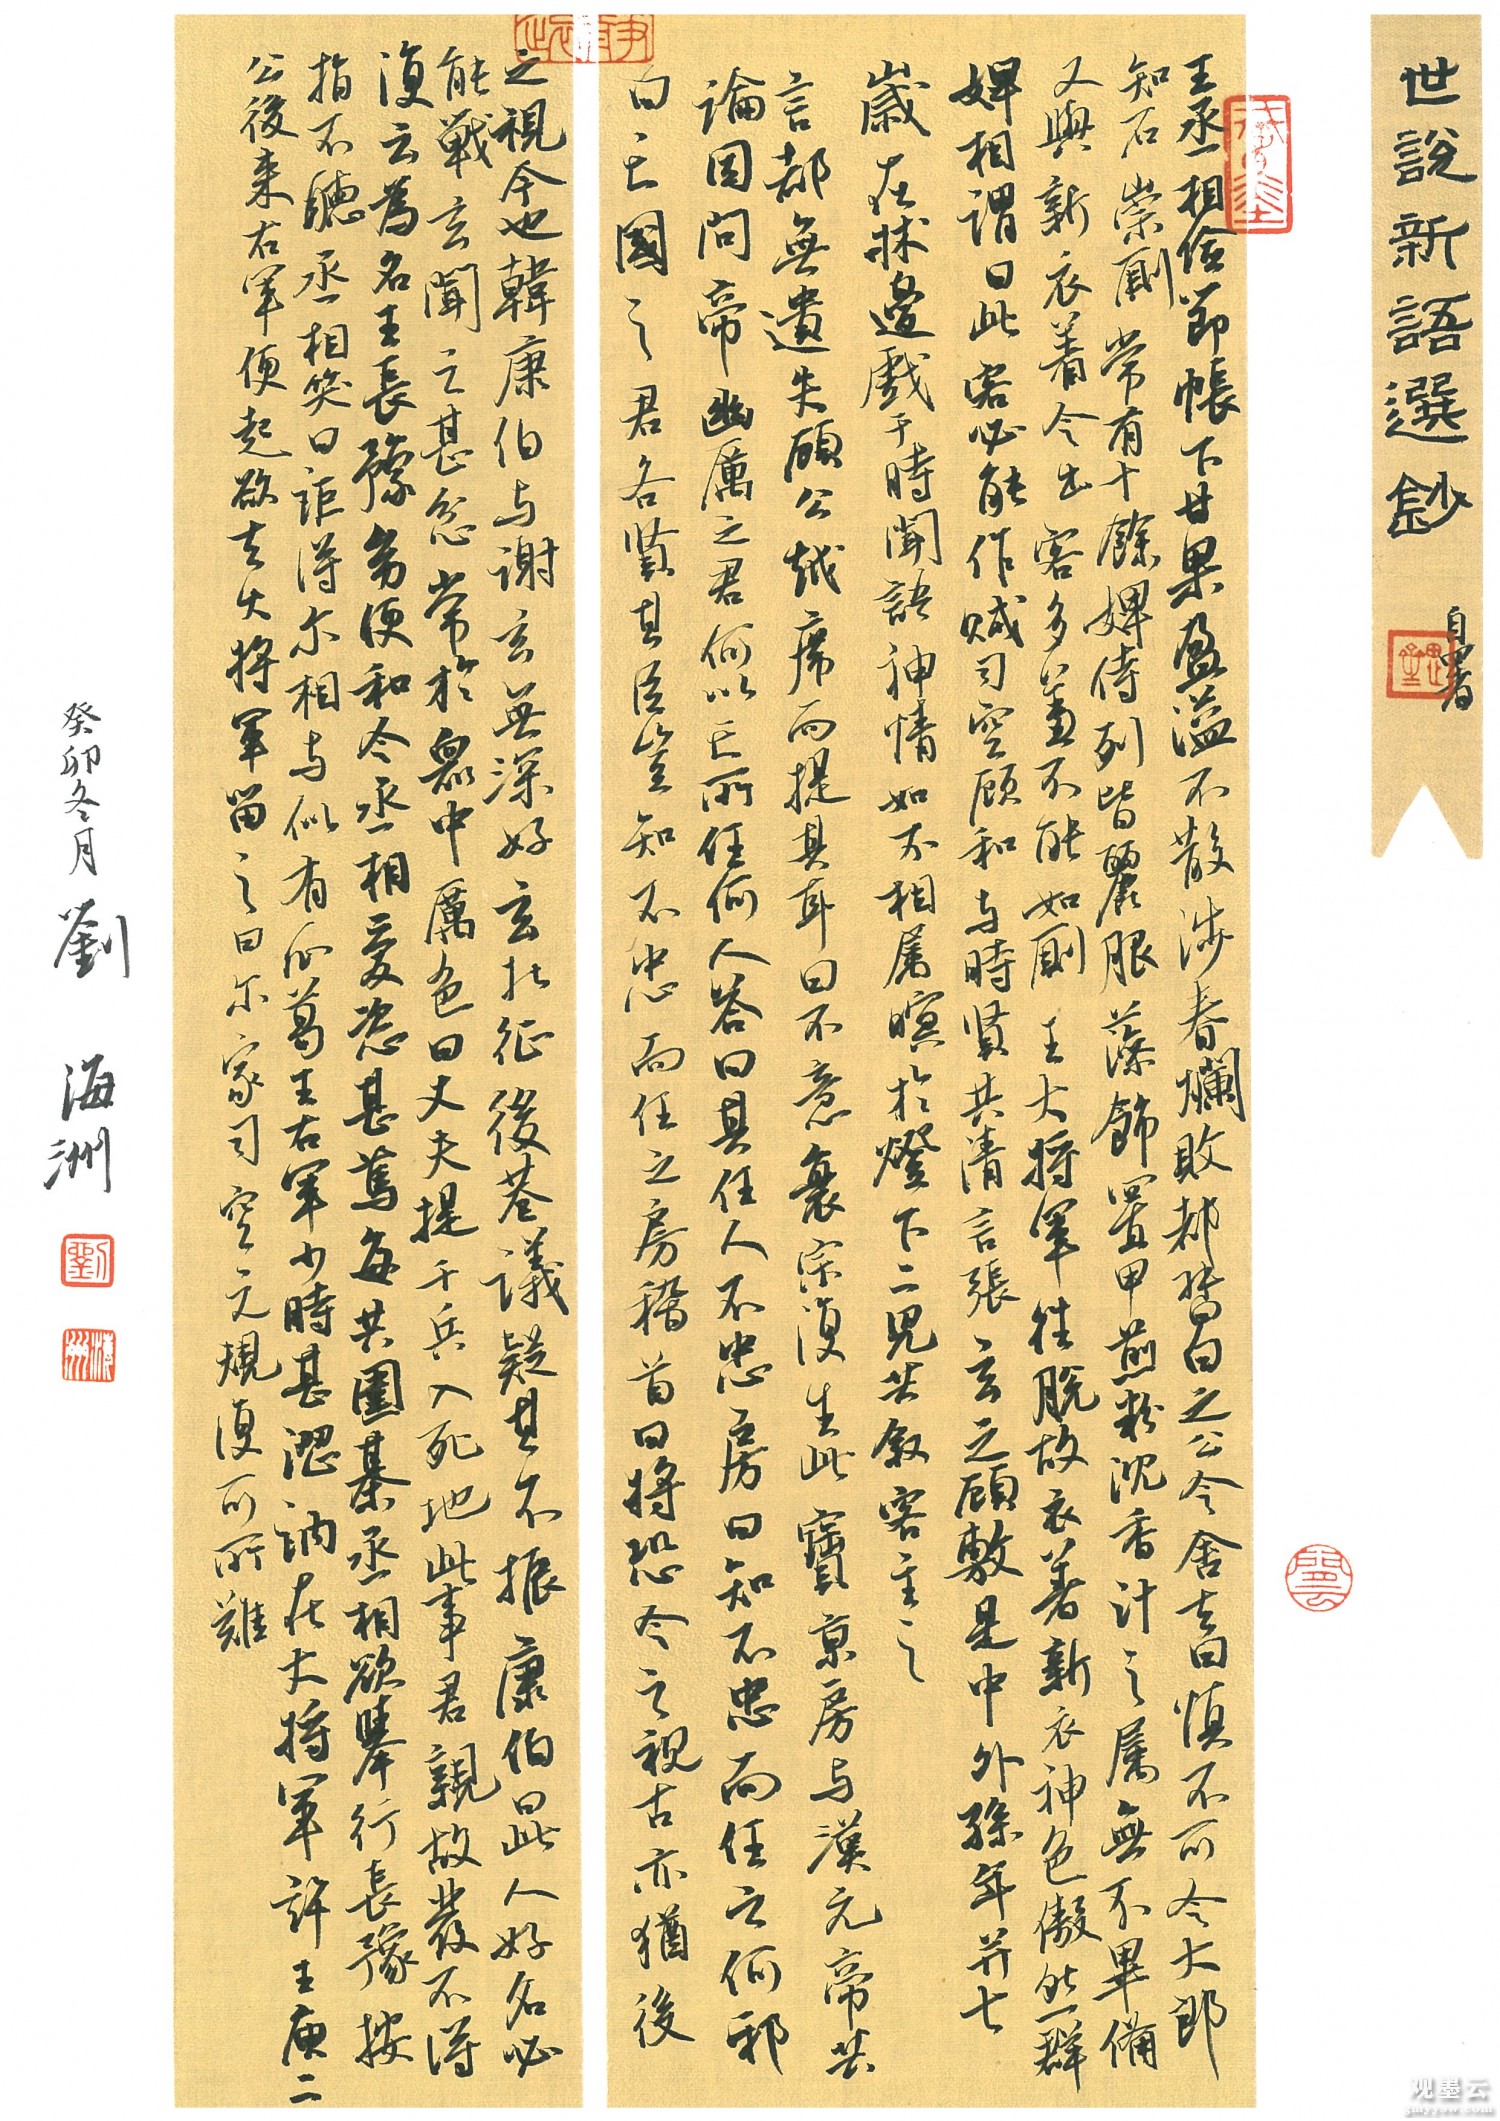 世說新語選鈔
自署
王丞相儉節帳下甘果盈溢不散涉春爛敗都督白之公令舍去曰慎不可令大郎
知石崇廁常有十餘婢侍列皆麗服藻飾置甲煎粉沈香汁之屬無不畢備
又與新衣着令出客多羞不能如廁王大將軍往脫故衣著新衣神色傲然群
婢相謂曰此客必能作賊司空顧和與時賢共清言張玄之顧敷是中外孫年並七
歲在牀邊戲于時聞語神情如不相屬暝於燈下二兒共敘客主之
言都無遺失顧公越席而提其耳曰不意衰宗復生此寶京房与漢元帝共
論因問帝幽厲之君何以亡所任何人答曰其任人不忠房曰知不忠而任之何邪
曰亡國之君各賢其臣豈知不忠而任之房稽首曰將恐今之視古亦猶後
之視今也韓康伯与謝玄無深好玄北征後巷議疑其不振康伯曰此人好名必
能戰玄聞之甚忿常於眾中厲色曰丈夫提千兵入死地此事君親故發不得
復云為名王長豫幼便和令丞相愛恣甚篤每共圍棊丞相欲舉行長豫按
指不聽丞相笑曰詎得尔相与似有瓜葛王右軍少時甚澀訥在大將軍許王庾二
公後来右軍便起欲去大將軍留之曰尔家司空元規復可所難
癸卯冬月劉海洲
劉
海洲
观墨云
gmyyow.com